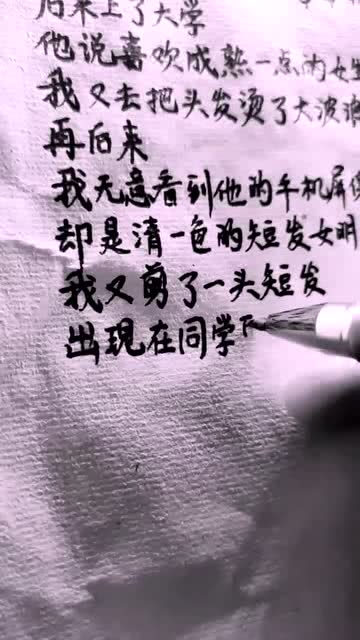 后来上了大学
他说喜欢成熟一点的女生
我又去把头发烫了大波浪
再后来
我无意看到他的手机屏
却是清一色的短发女明
我又剪了一头短发
出现在同学